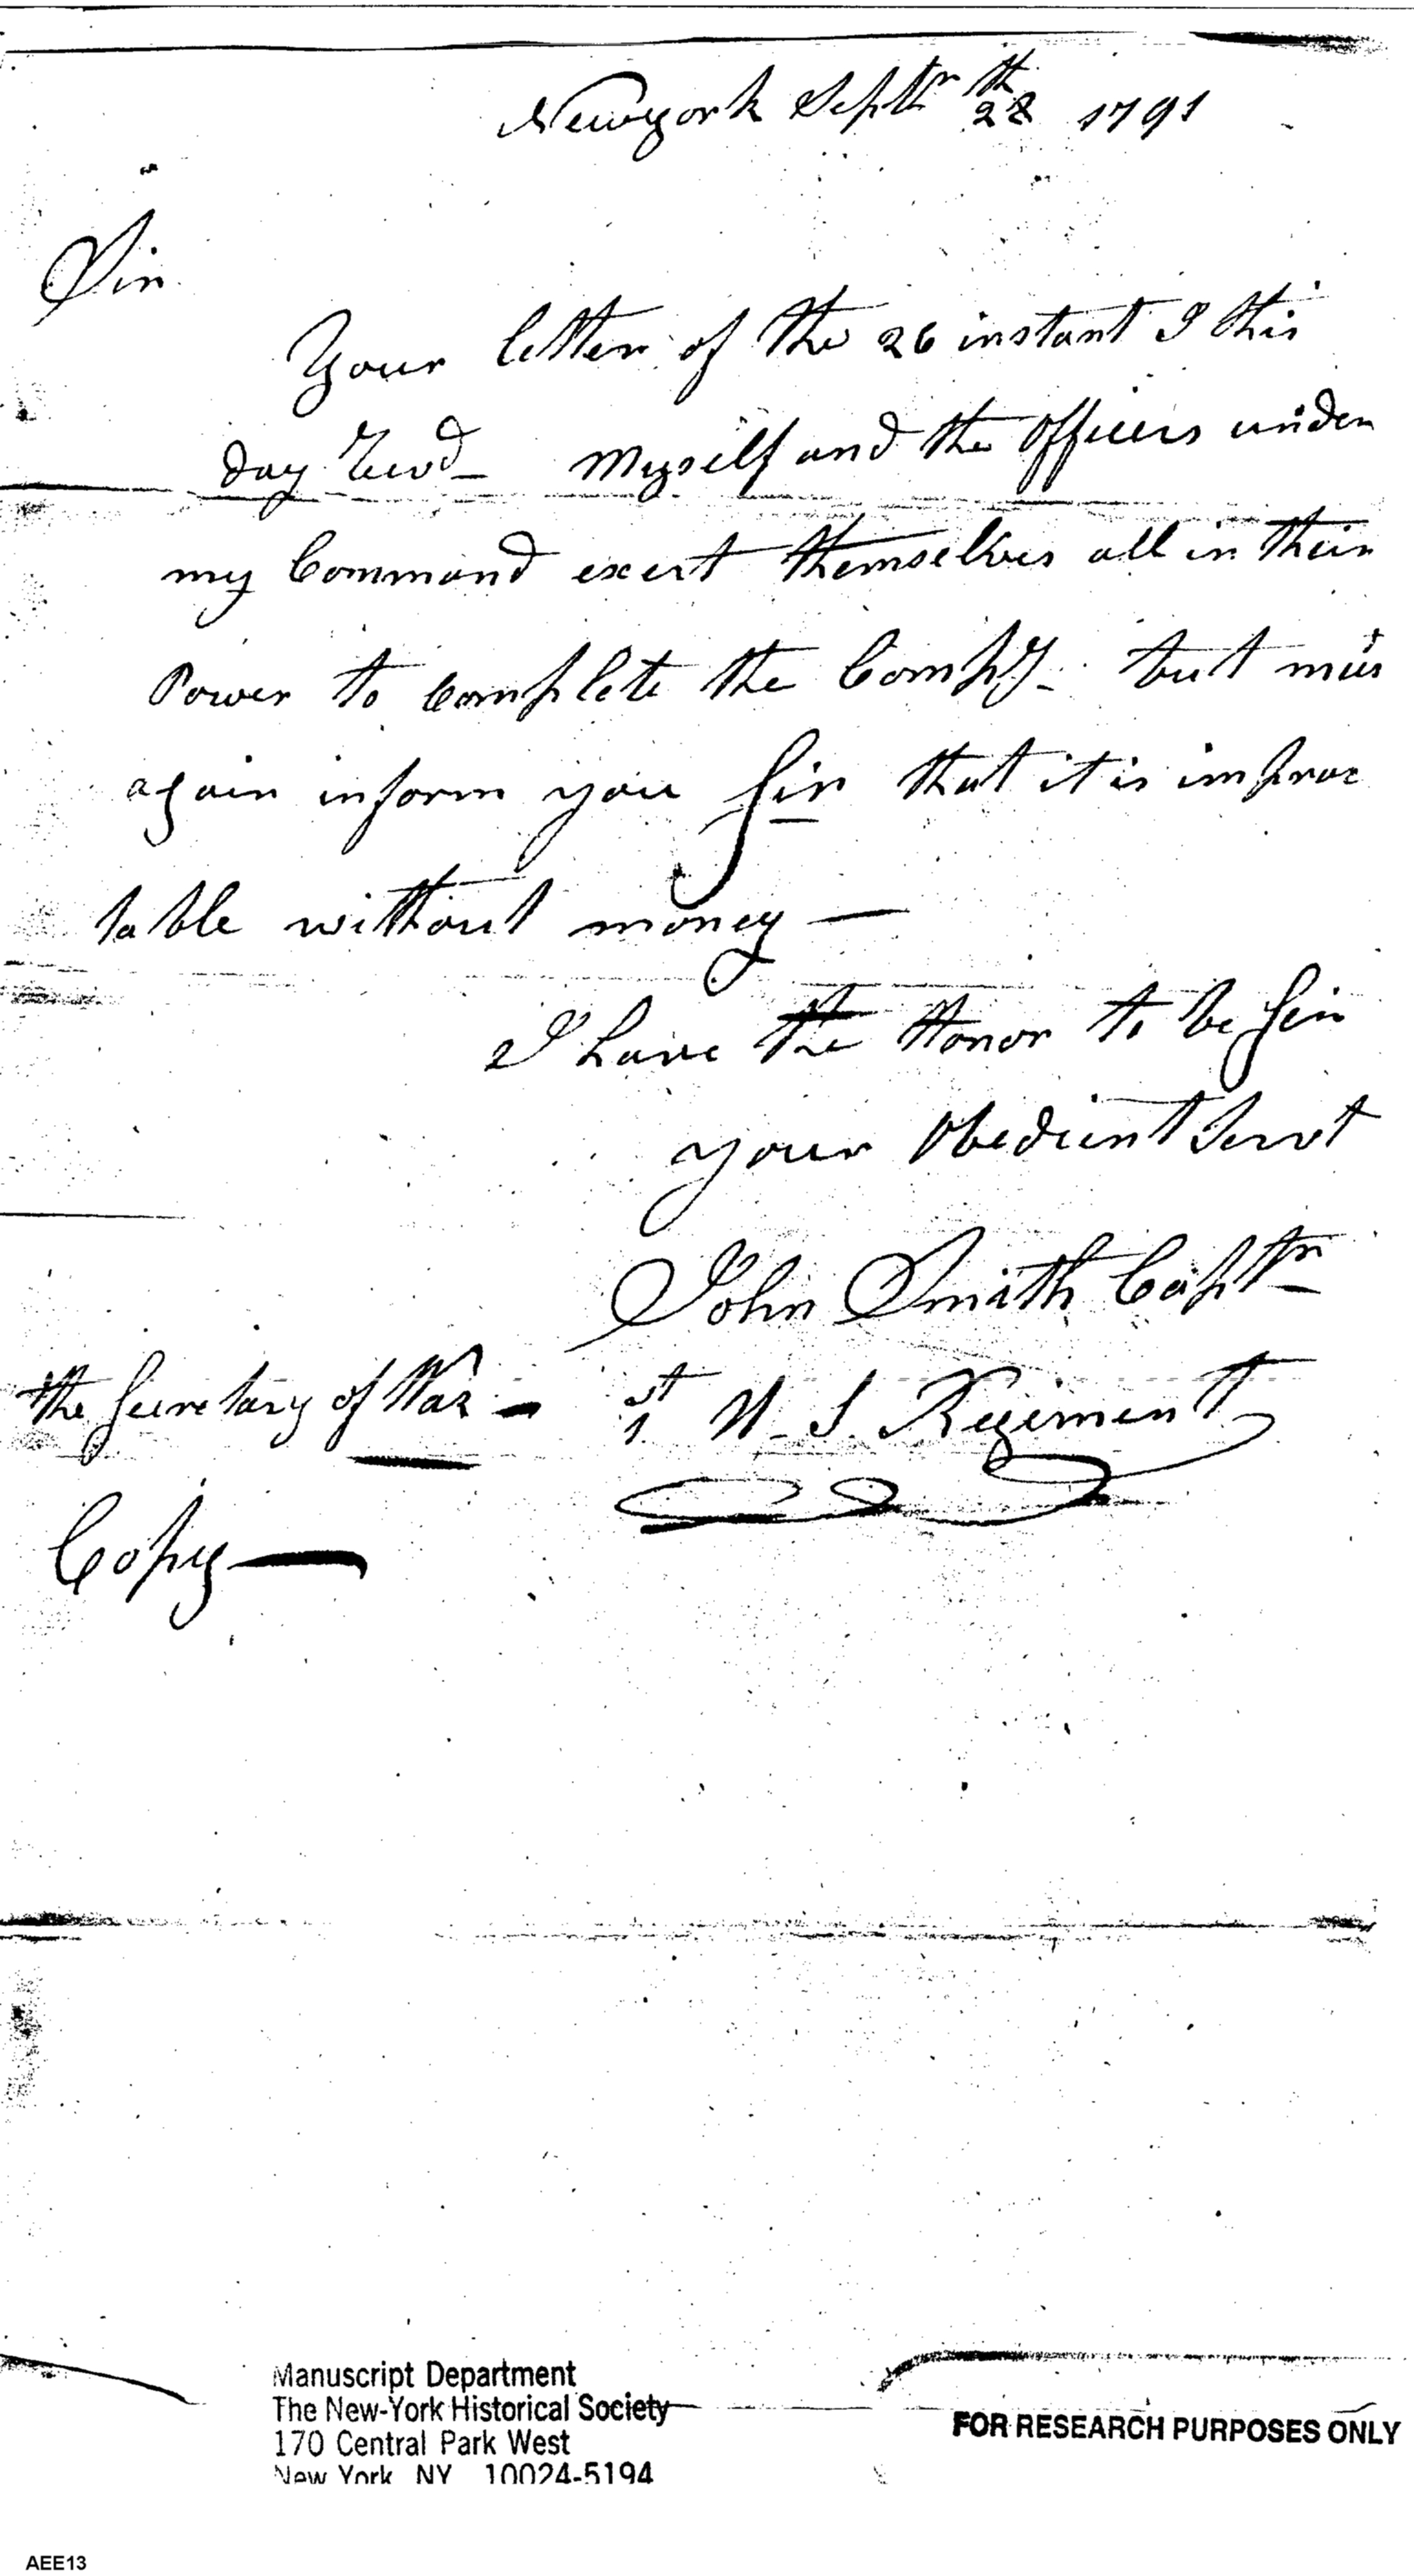 Newyork Septr 28th 1791
Sir
Your letter of the 26 instant I this
day Recvd — Myself and the Officers under
my Command exert themselves all in their
Power to complete the Compy — but must
again inform you Sir that it is imprac
table without money —
I have the Honor to be Sir
your Obedient Servt
John Smith Captn
the Secretary of War — 1st U. S. Regiment
Copy —
Manuscript Department
The New-York Historical Society
170 Central Park West
New York NY 10024-5194
FOR RESEARCH PURPOSES ONLY
AEE13